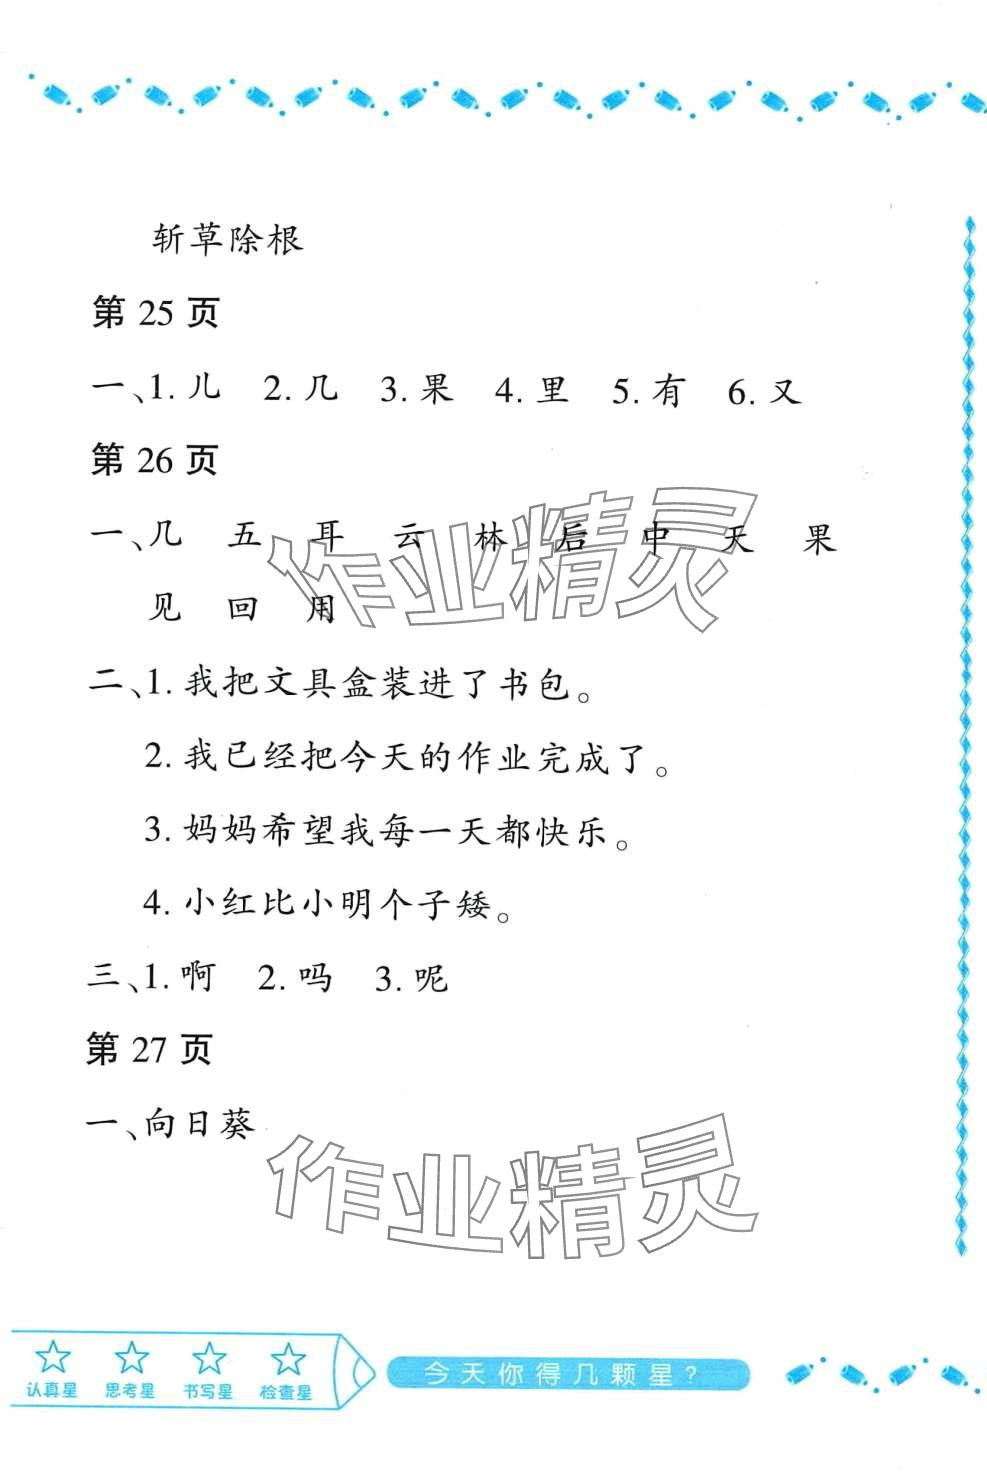 斩草除根
第 25 页
一、1. 儿 2. 几 3. 果 4. 里 5. 有 6. 又
第 26 页
一、几 五 耳 云 林 后 中 天 果
见 回 用
二、1. 我把文具盒装进了书包。
2. 我已经把今天的作业完成了。
3. 妈妈希望我每一天都快乐。
4. 小红比小明个子矮。
三、1. 啊 2. 吗 3. 呢
第 27 页
一、向日葵
作业精灵
作业精灵
认真星 思考星 书写星 检查星
今天你得几颗星？